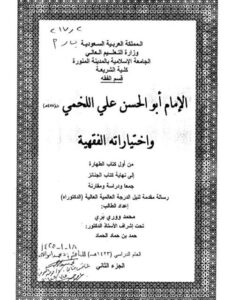 المملكة العربية السعودية
وزارة التعليم العالي
الجامعة الإسلامية بالمدينة المنورة
كلية الشريعة
قسم الفقه
الإمام أبو الحسن علي اللخمي
واختياراته الفقهية
من أول كتاب الطهارة
إلى نهاية كتاب الجنائز
جمعا ودراسة ومقارنة
رسالة مقدمة لنيل الدرجة العالمية العالية (الدكتوراه)
إعداد الطالب:
محمد ووري بري
تحت إشراف الأستاذ الدكتور:
حمد بن حماد الحماد
العام الدراسي
الجزء الثاني